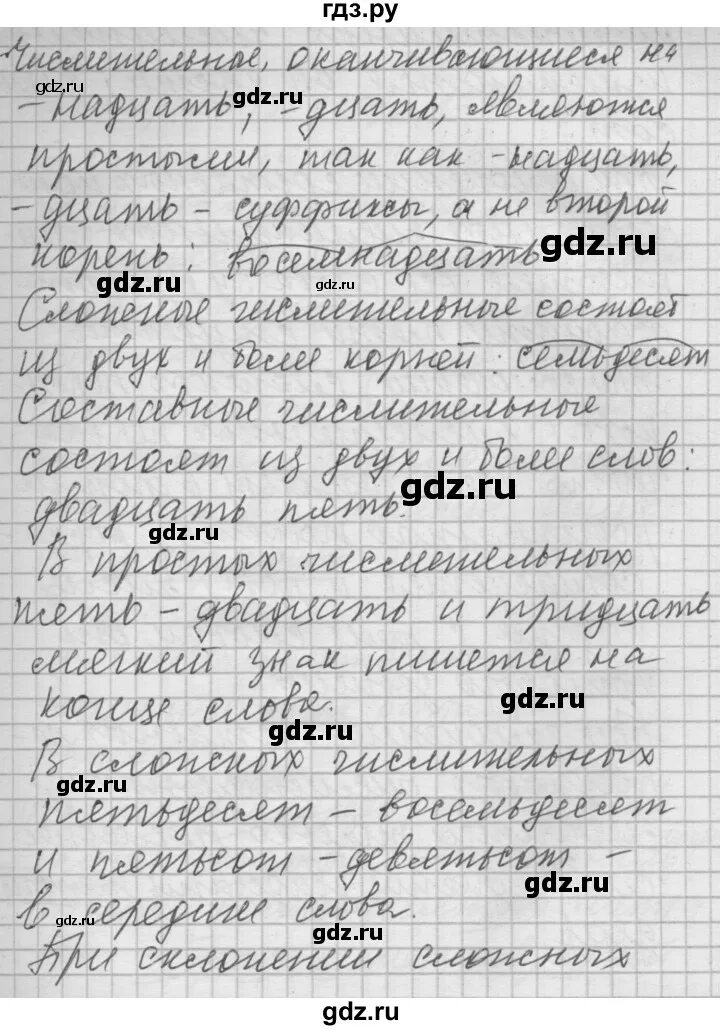 гдз.ру
Числительное, оканчивающиеся на
-надцать, -дцать, являются
простыми, так как -надцать,
-дцать - суффиксы, а не второй
корень: восемнадцать
Сложные числительные состоят
из двух и более корней: семьдесят
Составные числительные
состоят из двух и более слов:
двадцать пять.
В простых числительных
пять - двадцать и тридцать
мягкий знак пишется на
конце слова.
В сложных числительных
пятьдесят - восемьдесят
и пятьсот - девятьсот -
в середине слова.
При склонении сложных
gdz.ru
gdz.ru
gdz.ru
gdz.ru
gdz.ru
gdz.ru
gdz.ru
gdz.ru
gdz.ru
gdz.ru
gdz.ru
gdz.ru
gdz.ru
gdz.ru